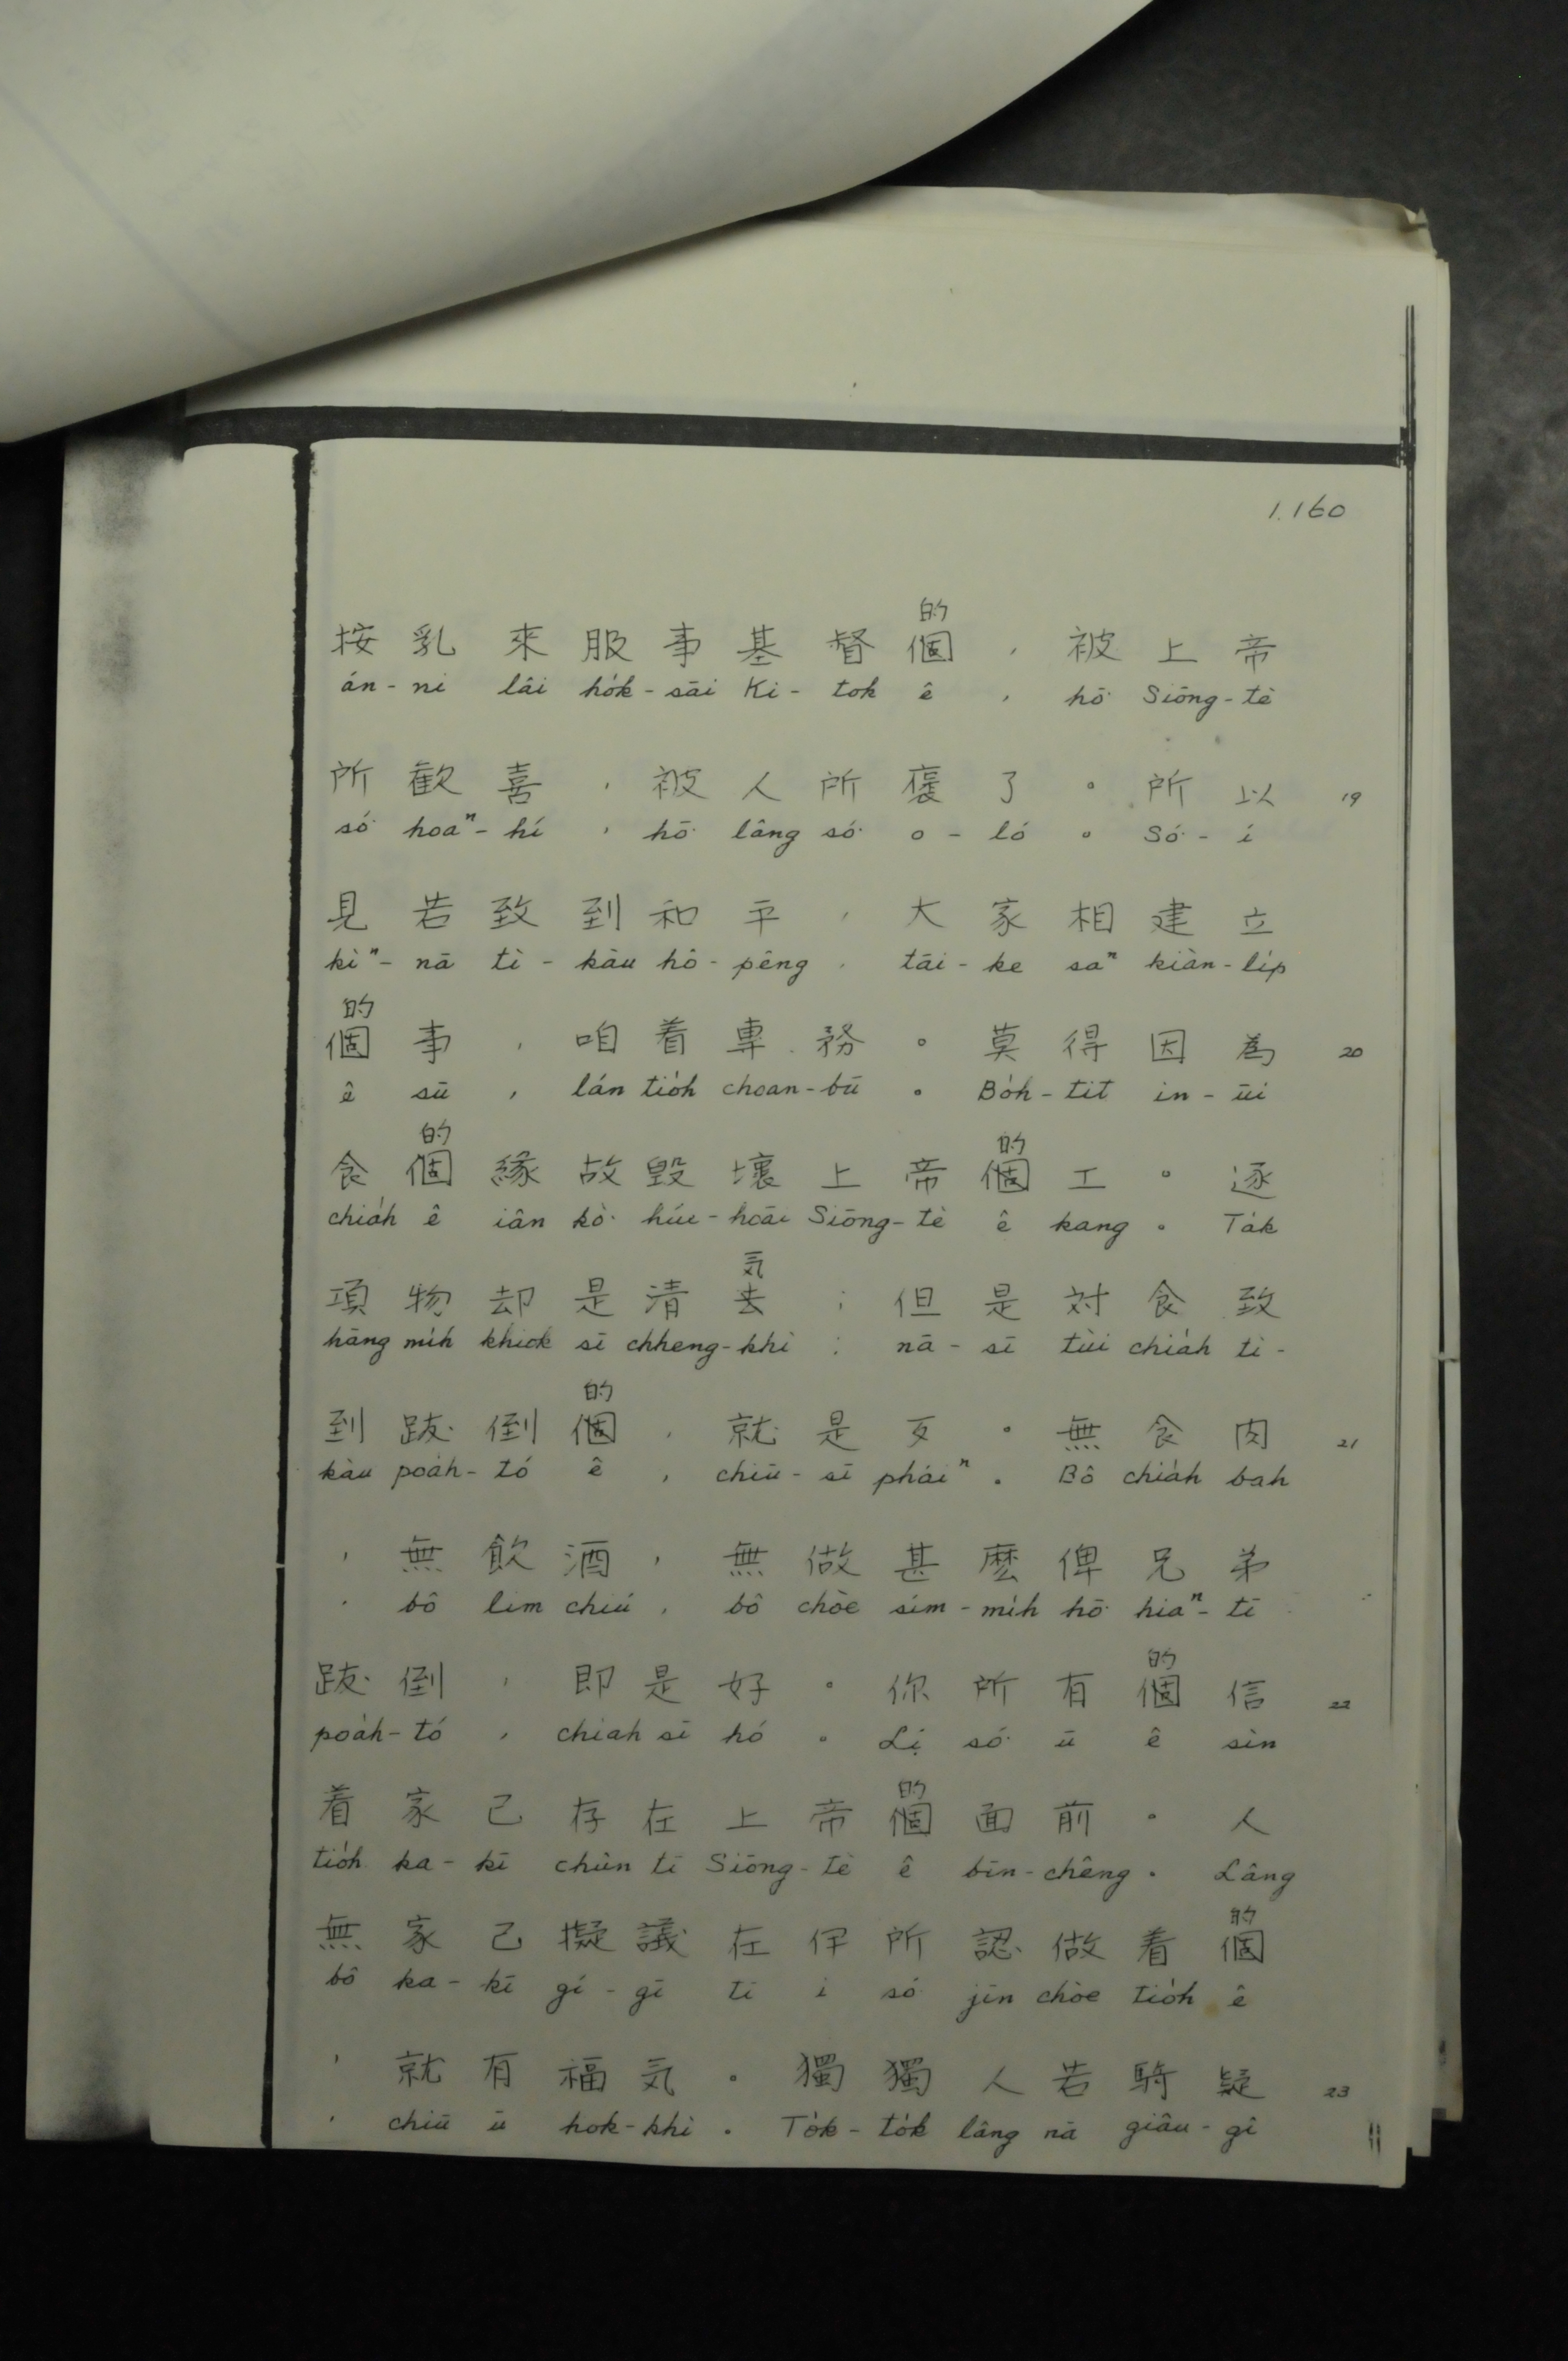 1.160
的
按乳來服事基督個，被上帝
án-ni lâi ho̍k-sāi Ki-tok ê, hō͘ Siōng-tè
所歡喜，被人所褒了。所以 19
só͘ hoaⁿ-hí, hō͘ lâng só͘ o-ló. Só͘-í
見若致到和平，大家相建立
kìⁿ-nā tì-kàu hô-pêng, tāi-ke saⁿ kiàn-li̍p
的
個事，咱着專務。莫得因為 20
ê sū, lán tio̍h choan-bū. Bo̍h-tit in-ūi
的 的
食個緣故毀壞上帝個工。逐
chia̍h ê iân kò͘ húi-hoāi Siōng-tè ê kang. Ta̍k
気
項物却是清去；但是対食致
hāng mi̍h khiok sī chheng-khì; nā-sī tùi chia̍h tì-
的
到跋倒個，就是歹。無食肉 21
kàu poa̍h-tó ê, chiū-sī pháiⁿ. Bô chia̍h bah
，無飲酒，無做甚麽俾兄弟
, bô lim chiú, bô chòe sím-mi̍h hō͘ hiaⁿ-tī
的
跋倒，即是好。你所有個信 22
poa̍h-tó, chiah sī hó. Lí só͘ ū ê sìn
的
着家己存在上帝個面前。人
tio̍h ka-kī chûn tī Siōng-tè ê bīn-chêng. Lâng
的
無家己擬議在伊所認做着個
bô ka-kī gí-gī tī i só͘ jīn chòe tio̍h ê
，就有福気。獨獨人若騎疑 23
, chiū ū hok-khì. To̍k-to̍k lâng nā giâu-gî